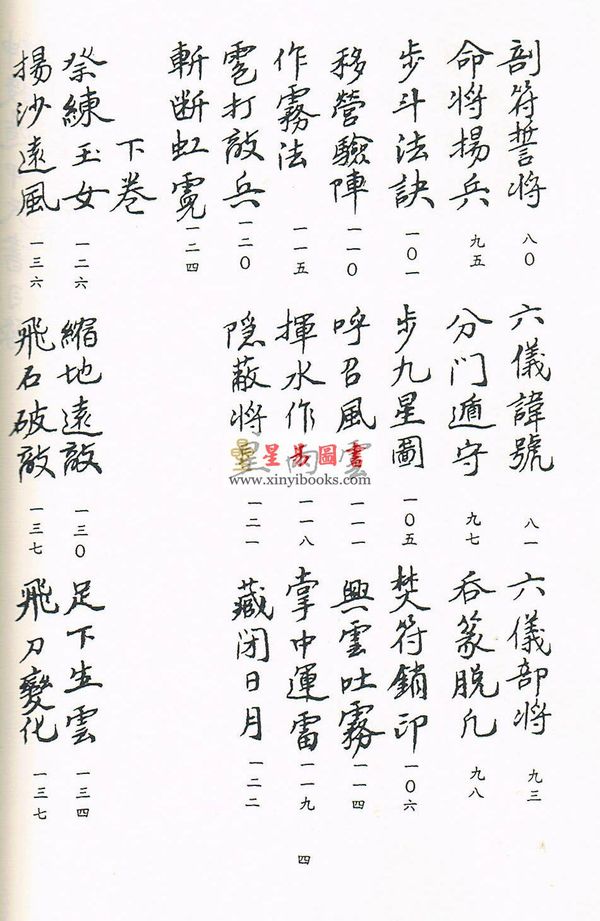 剖符誓将 八〇 六儀諱號 八一 六儀部将 九三
命将揚兵 九五 分门遁守 九七 吞篆脱凡 九八
步斗法訣 一〇一 步九星圖 一〇五 焚符銷印 一〇六
移營驗陣 一一〇 呼召風雲 一一一 興雲吐霧 一一四
作霧法 一一五 揮水作雨 一一八 掌中運雷 一一九
雹打敵兵 一二〇 隐蔽将星 一二一 藏闭日月 一二二
斬断虹霓 一二四
下卷
祭練玉女 一二六 縮地遠敵 一三〇 足下生雲 一三四
揚沙遠風 一三六 飛石破敵 一三七 飛刀變化 一三七
四
星易圖書
www.xinyibooks.com